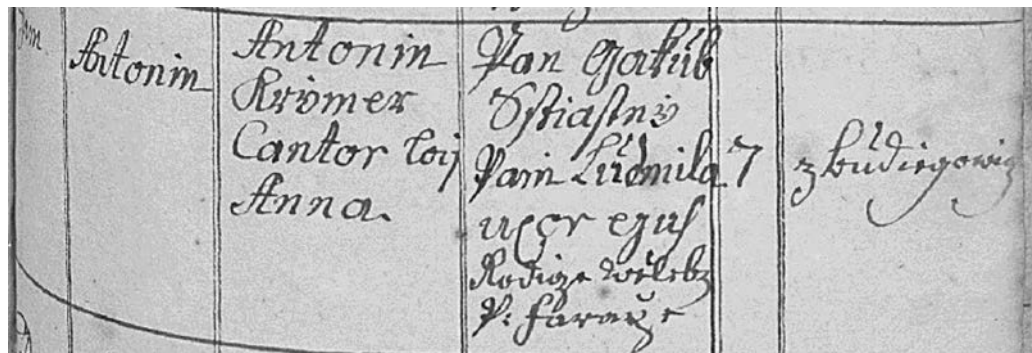 Antonin
Antonin
Krömer
Cantor loci
Anna.
Pan Gakub
Sstiastny
Pani Ludmila
uxor ejus
Rodicze
P: Faraře
7
z Budiegowicz